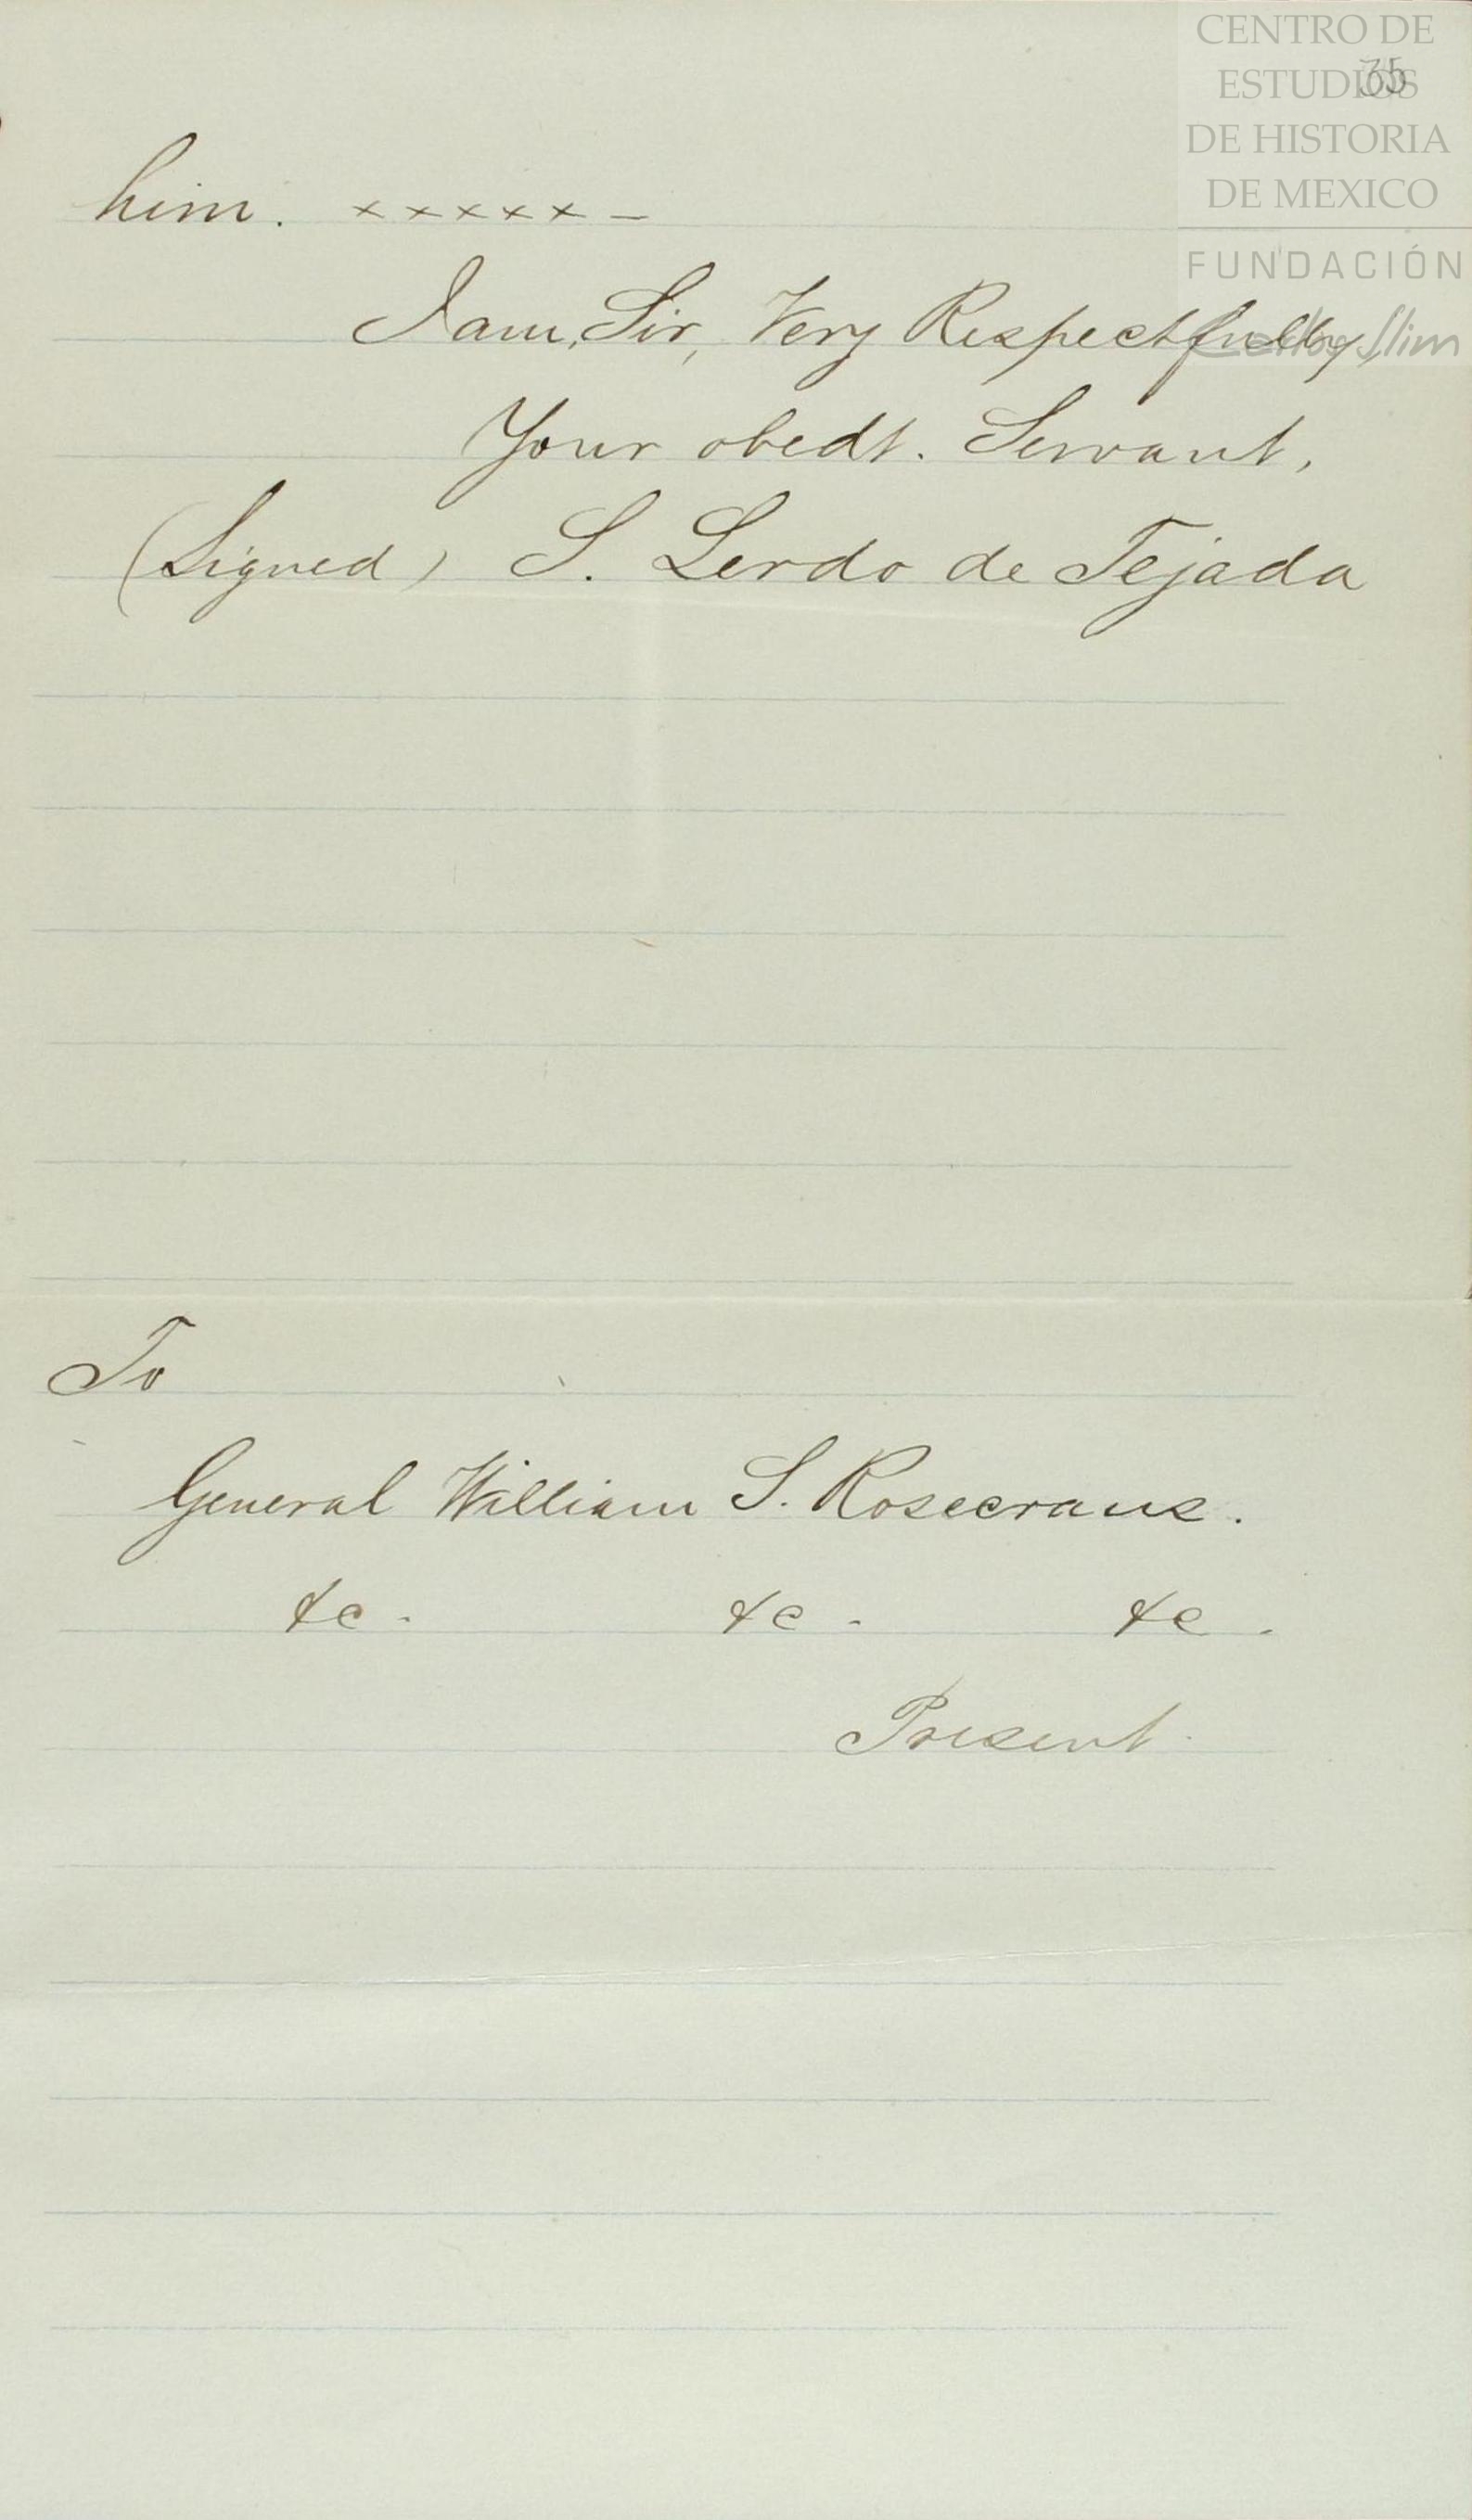 CENTRO DE
ESTUDIOS
DE HISTORIA
DE MEXICO
FUNDACIÓN
Carlos Slim
35
him. x x x x x –
I am, Sir, Very Respectfully,
Your obedt. Servant,
(Signed) S. Lerdo de Tejada
To
General William S. Rosecrans.
&c. &c. &c.
Present.